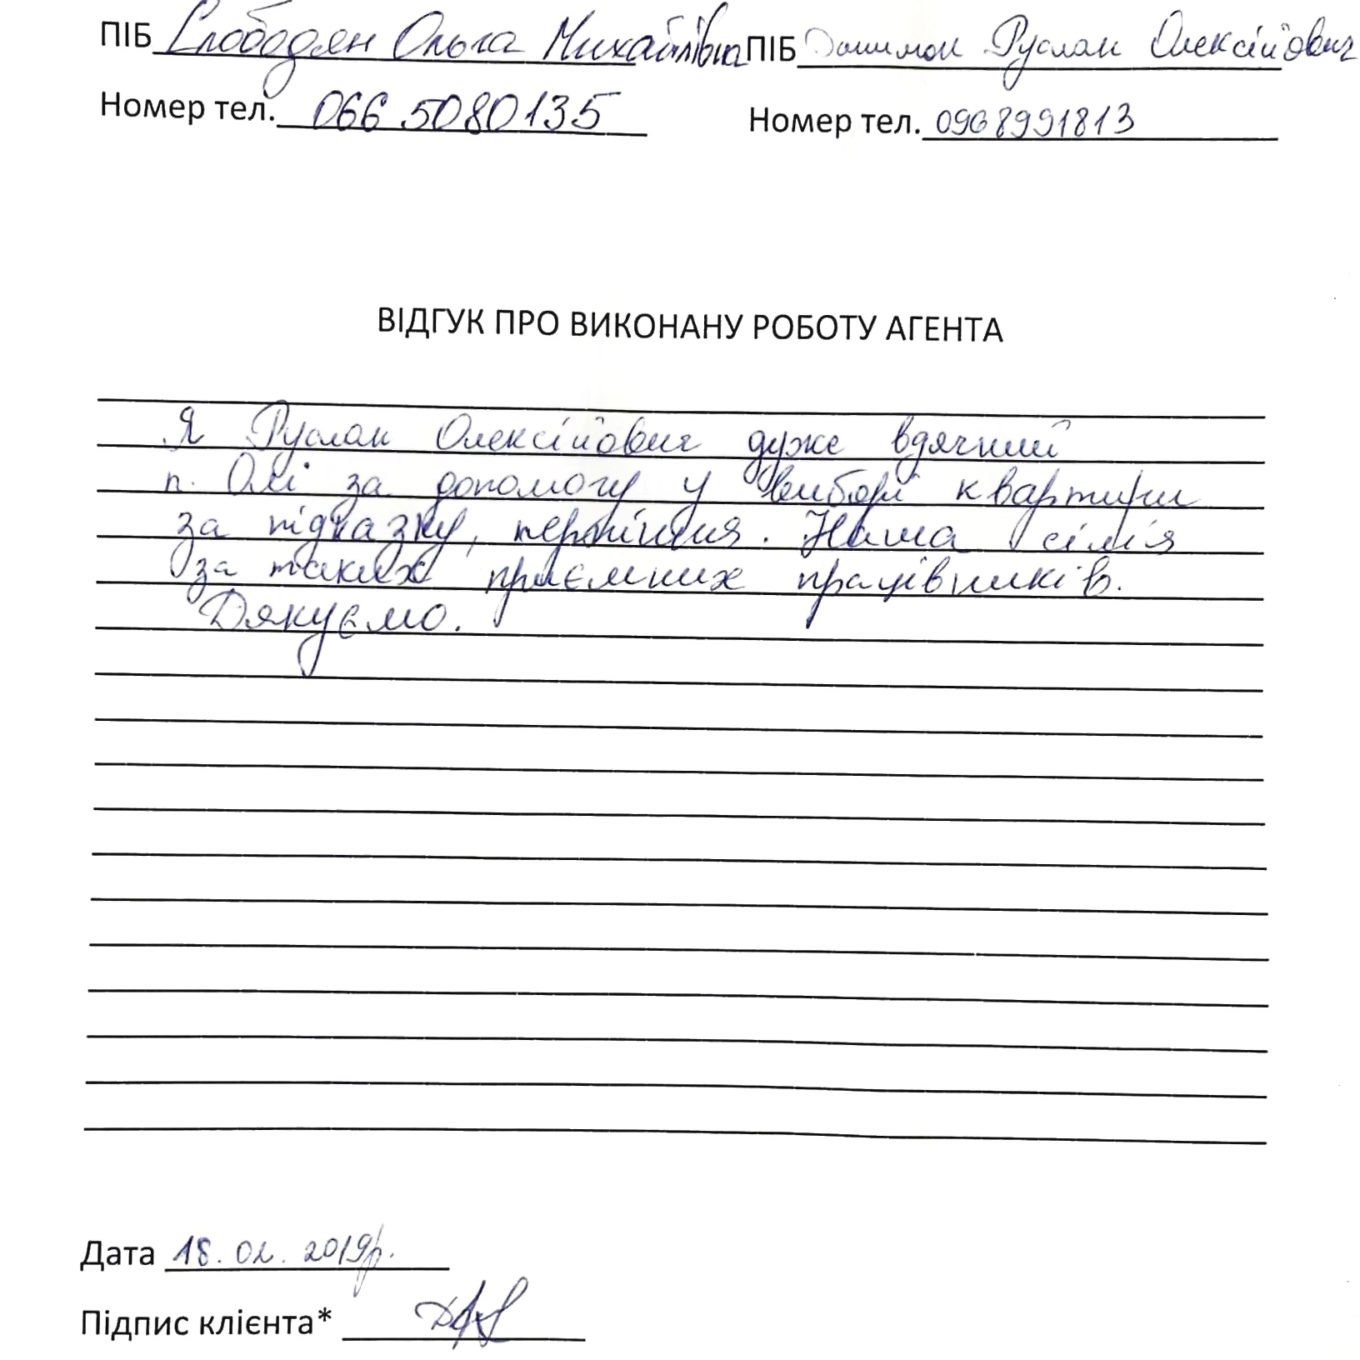 ПІБ Слободян Ольга Михайлівна ПІБ Руслан Олексійович
Номер тел. 066 5080135 Номер тел. 0968991813
ВІДГУК ПРО ВИКОНАНУ РОБОТУ АГЕНТА
Я Руслан Олексійович дуже вдячний
п. Олі за допомогу у виборі квартири
за підказку, терпіння. Наша сімія
за таких приємних працівників.
Дякуємо.
Дата 18.02.2019р.
Підпис клієнта*